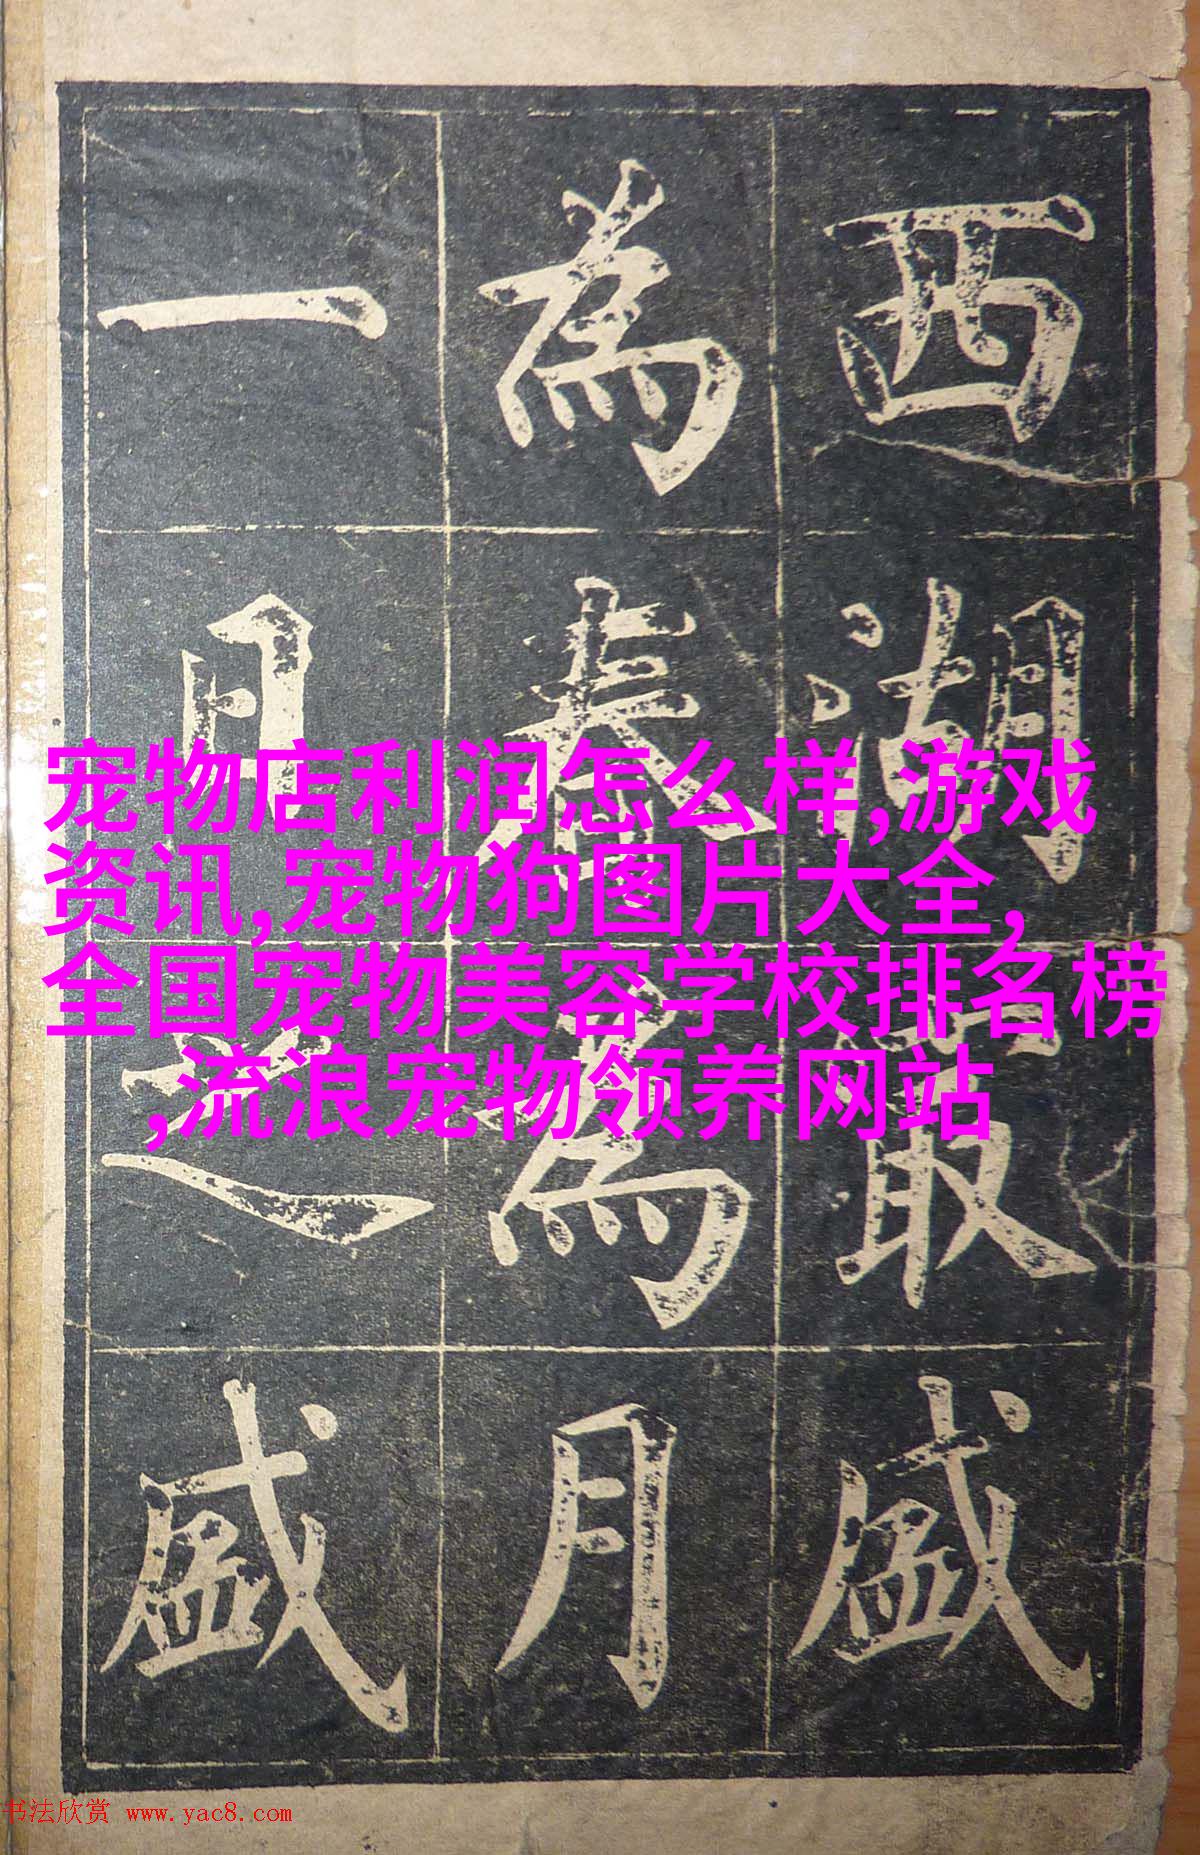 西湖最盛
為春為月
一日之盛
宠物店利润怎么样,游戏
资讯,宠物狗图片大全,
全国宠物美容学校排名榜
,流浪宠物领养网站
书法欣赏 www.yac8.com